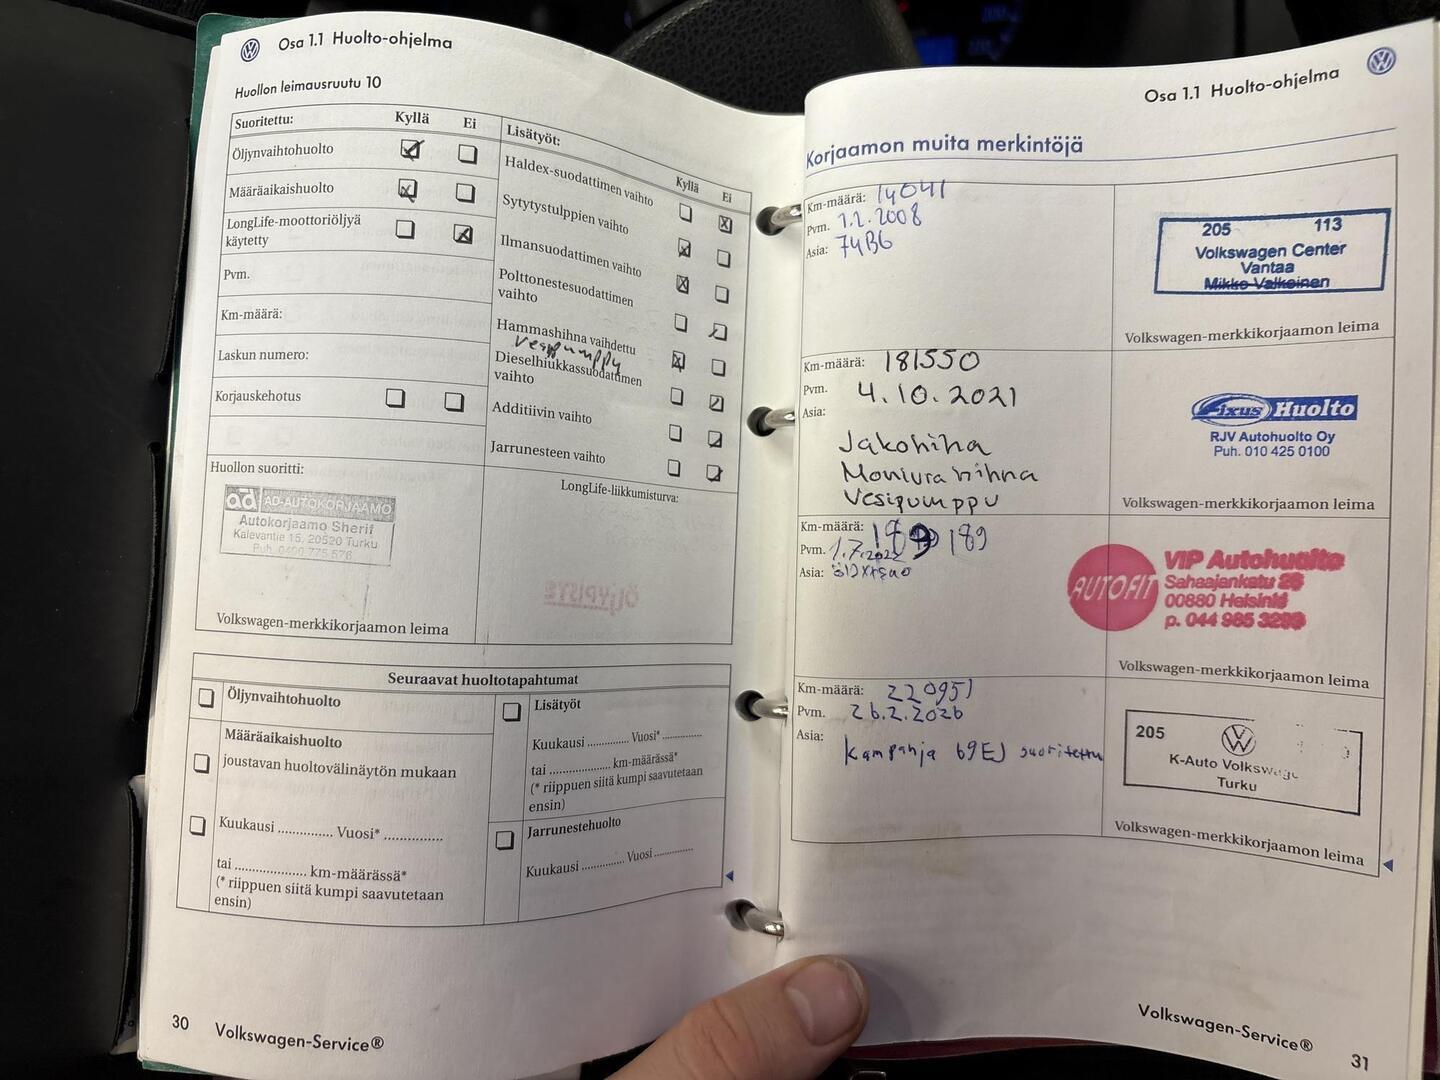 Osa 1.1 Huolto-ohjelma
Huollon leimausruutu 10
Suoritettu: Kyllä Ei
Öljynvaihtohuolto
Määräaikaishuolto
LongLife-moottoriöljyä
käytetty
Pvm.
Km-määrä:
Laskun numero:
Korjauskehotus
Huollon suoritti:
ad AD-AUTOKORJAAMO
Autokorjaamo Sherif
Kalevantie 15, 20520 Turku
Puh. 0400 775 576
Volkswagen-merkkikorjaamon leima
Lisätyöt: Kyllä Ei
Haldex-suodattimen vaihto
Sytytystulppien vaihto
Ilmansuodattimen vaihto
Polttonestesuodattimen
vaihto
Hammashihna vaihdettu
vesipumppu
Dieselhiukkassuodattimen
vaihto
Additiivin vaihto
Jarrunesteen vaihto
LongLife-liikkumisturva:
Seuraavat huoltotapahtumat
Öljynvaihtohuolto
Määräaikaishuolto
joustavan huoltovälinäytön mukaan
Kuukausi ............... Vuosi* ...............
tai ................... km-määrässä*
(* riippuen siitä kumpi saavutetaan
ensin)
Lisätyöt
Kuukausi ............... Vuosi* ..............
tai .................... km-määrässä*
(* riippuen siitä kumpi saavutetaan
ensin)
Jarrunestehuolto
Kuukausi ............... Vuosi ..............
30 Volkswagen-Service®
Osa 1.1 Huolto-ohjelma
Korjaamon muita merkintöjä
Km-määrä: 14041
Pvm. 1.2.2008
Asia: 74B6
205 113
Volkswagen Center
Vantaa
Mikko Valkeinen
Volkswagen-merkkikorjaamon leima
Km-määrä: 181550
Pvm. 4.10.2021
Asia:
Jakohihna
Moniurahihna
Vesipumppu
Fixus Huolto
RJV Autohuolto Oy
Puh. 010 425 0100
Volkswagen-merkkikorjaamon leima
Km-määrä: 189
Pvm. 1.7.2022
Asia:
AUTOFIT
VIP Autohuolto
Sahaajankatu 28
00880 Helsinki
p. 044 985 3299
Volkswagen-merkkikorjaamon leima
Km-määrä: 220951
Pvm. 26.2.2026
Asia:
Kampanja 69EJ suoritettu
205
K-Auto Volkswage
Turku
Volkswagen-merkkikorjaamon leima
Volkswagen-Service®
31